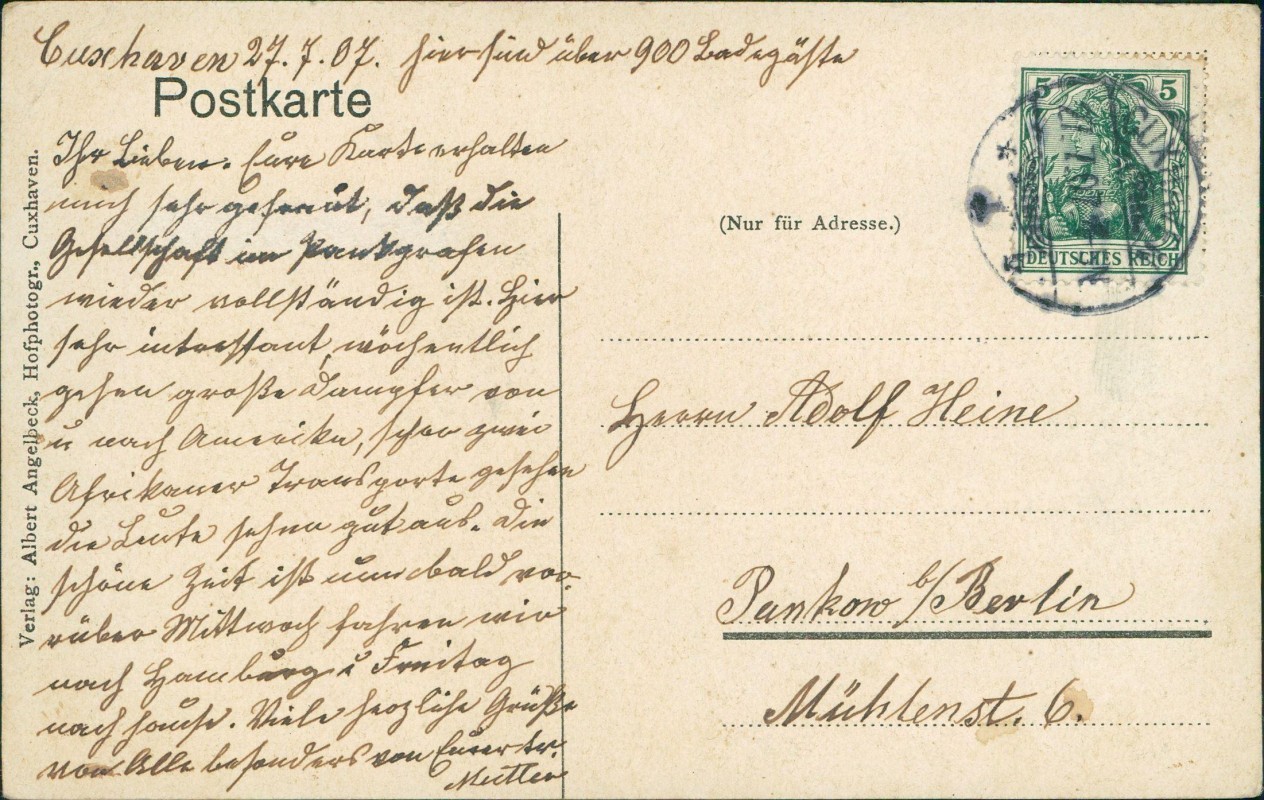 Cuxhaven 27.7.07. hier sind über 900 Badegäste
Postkarte
Ihr Lieben. Eure Karte erhalten
mich sehr gefreut, daß die
Gesellschaft im Pankgrafen
wieder vollständig ist. Hier
sehr interessant, wöchentlich
gehen große Dampfer von
u. nach Amerika, schon zwei
Afrikaner Transporte gesehen
die Leute sehen gut aus. Die
schöne Zeit ist nun bald vor-
rüber Mittwoch fahren wir
nach Hamburg u Freitag
nach hause. Viele herzliche Grüße
von Alle besonders von Eurer tr.
Mutter
Verlag: Albert Angelbeck, Hofphotogr., Cuxhaven.
5 5
DEUTSCHES REICH
CUXHAVEN
(Nur für Adresse.)
Herrn Adolf Heine
Pankow b/Berlin
Mühlenst. 6.